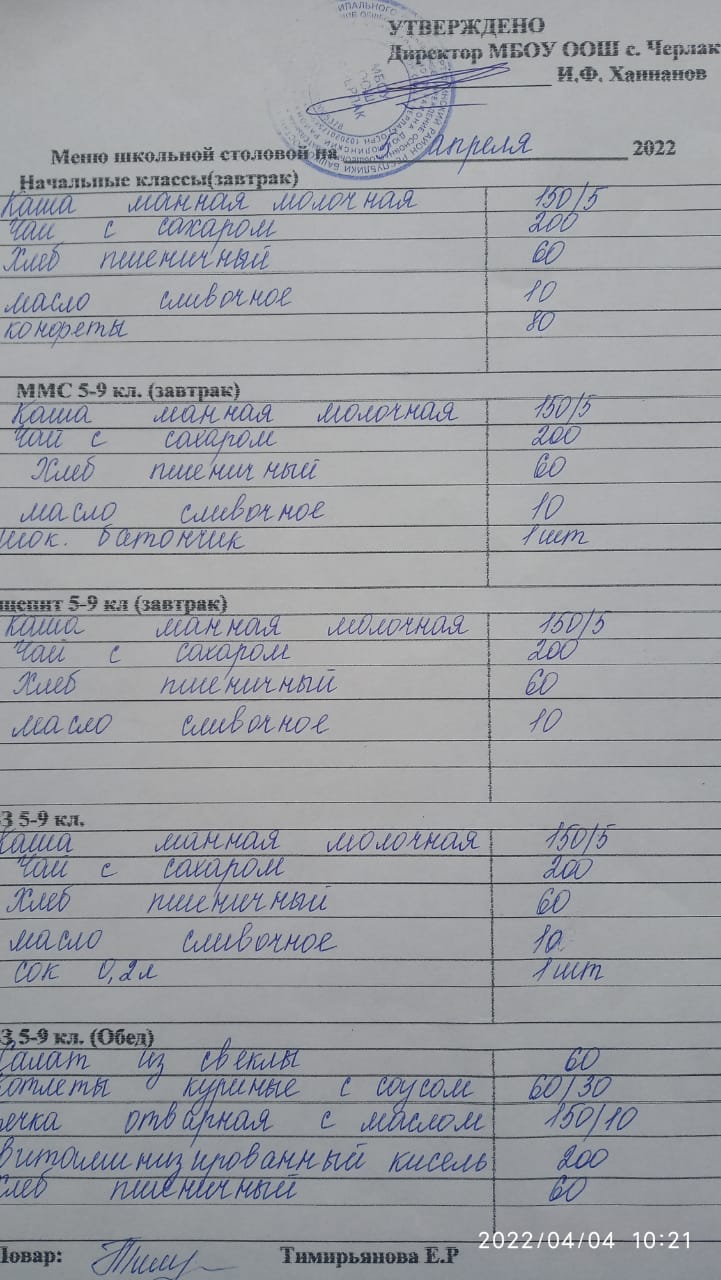 УТВЕРЖДЕНО
Директор МБОУ ООШ с. Черлак
И.Ф. Ханнанов
Меню школьной столовой на апреля 2022
Начальные классы(завтрак)
Каша манная молочная 150/5
Чай с сахаром 200
Хлеб пшеничный 60
масло сливочное 10
конфеты 80
ММС 5-9 кл. (завтрак)
Каша манная молочная 150/5
Чай с сахаром 200
Хлеб пшеничный 60
масло сливочное 10
шок. батончик 1 шт
щепит 5-9 кл (завтрак)
Каша манная молочная 150/5
Чай с сахаром 200
Хлеб пшеничный 60
масло сливочное 10
З 5-9 кл.
Каша манная молочная 150/5
Чай с сахаром 200
Хлеб пшеничный 60
масло сливочное 10
сок 0,2л 1 шт
З 5-9 кл. (Обед)
Салат из свеклы 60
Котлеты куриные с соусом 60/30
речка отварная с маслом 150/10
Витаминизированный кисель 200
Хлеб пшеничный 60
Повар: Тимирьянова Е.Р
2022/04/04 10:21